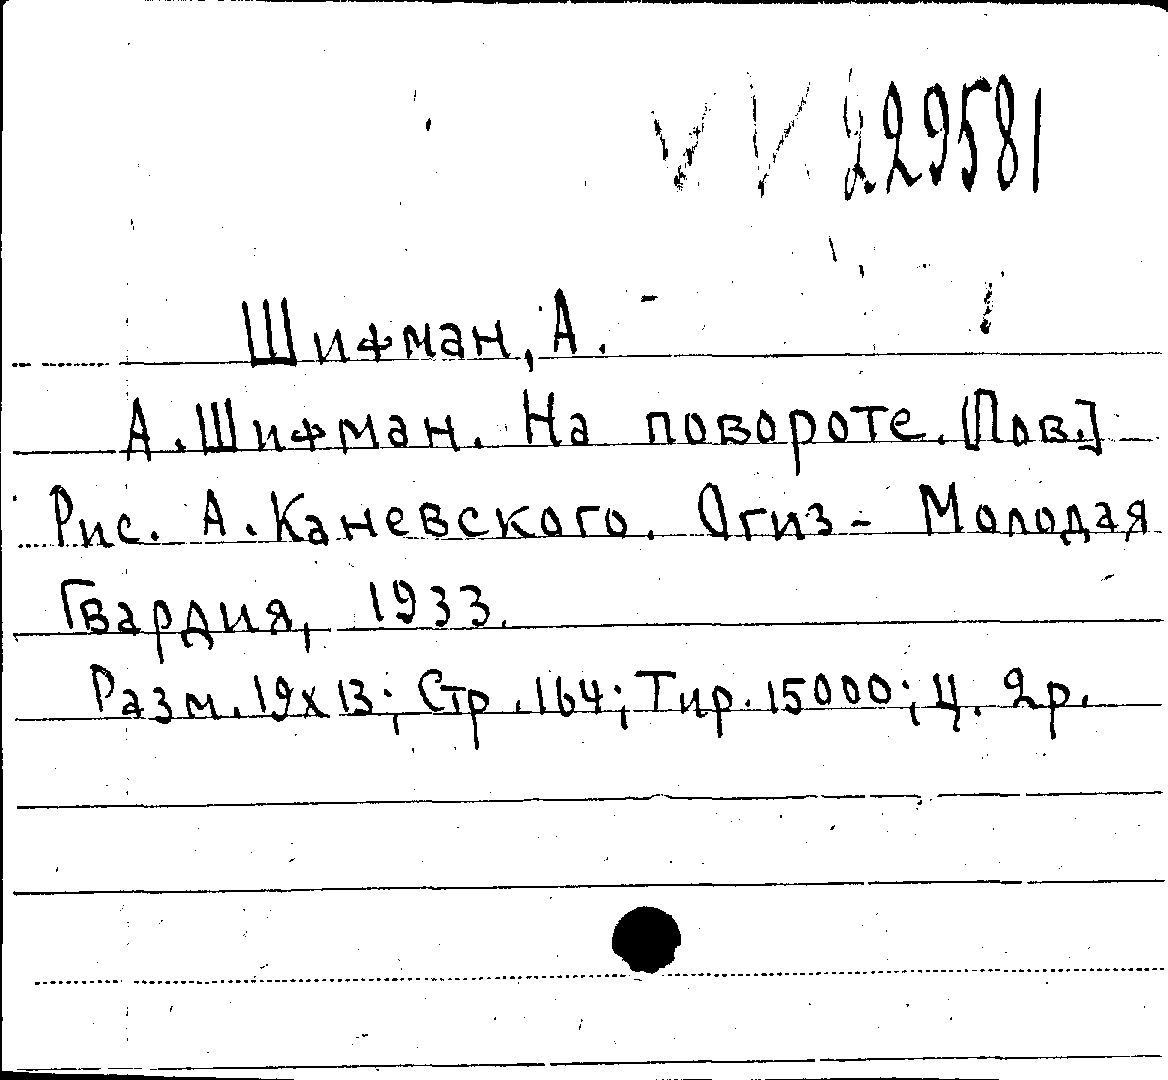 229581
Шифман, А.
А. Шифман. На повороте. [Пов.]
Рис. А. Каневского. Огиз - Молодая
Гвардия, 1933.
Разм. 19х13; Стр. 164; Тир. 15000; Ц. 2р.